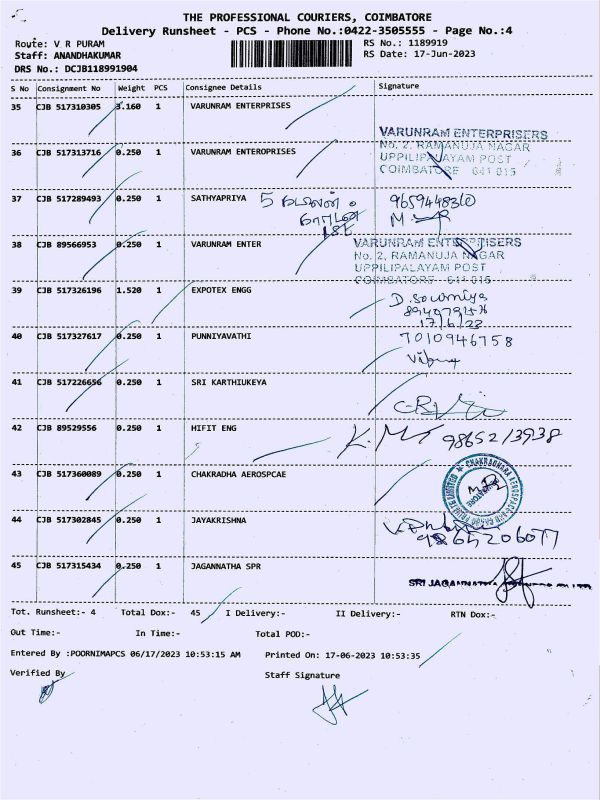 THE PROFESSIONAL COURIERS, COIMBATORE
Delivery Runsheet - PCS - Phone No.:0422-3505555 - Page No.:4
Route: V R PURAM
RS No.: 1189919
Staff: ANANDHAKUMAR
RS Date: 17-Jun-2023
DRS No.: DCJB118991904
S No Consignment No Weight PCS Consignee Details Signature
35 CJB 517310305 3.160 1 VARUNRAM ENTERPRISES
VARUNRAM ENTERPRISERS
No. 2, RAMANUJA NAGAR
36 CJB 517313716 0.250 1 VARUNRAM ENTEROPRISES
UPPILIPALAYAM POST
COIMBATORE 641 015
37 CJB 517289493 0.250 1 SATHYAPRIYA 5 9659448360
M.
38 CJB 89566953 0.250 1 VARUNRAM ENTER
VARUNRAM ENTERPRISERS
No. 2, RAMANUJA NAGAR
UPPILIPALAYAM POST
COIMBATORE 641 015
39 CJB 517326196 1.520 1 EXPOTEX ENGG
D. Sowmiya
17/6/23
40 CJB 517327617 0.250 1 PUNNIYAVATHI 7010946758
41 CJB 517226656 0.250 1 SRI KARTHIUKEYA
42 CJB 89529556 0.250 1 HIFIT ENG
98652/3938
43 CJB 517360089 0.250 1 CHAKRADHA AEROSPCAE
44 CJB 517302845 0.250 1 JAYAKRISHNA
9865206077
45 CJB 517315434 0.250 1 JAGANNATHA SPR
SRI JAGANNATHA
Tot. Runsheet:- 4 Total Dox:- 45 I Delivery:- II Delivery:- RTN Dox:-
Out Time:- In Time:- Total POD:-
Entered By :POORNIMAPCS 06/17/2023 10:53:15 AM Printed On: 17-06-2023 10:53:35
Verified By Staff Signature